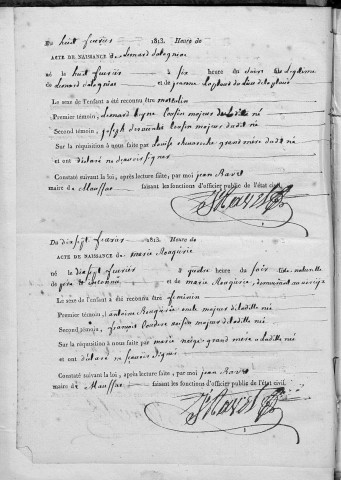 Du huit fevrier 1813. Heure de
ACTE DE NAISSANCE de bernard
né le huit fevrier à six heure du soir fils legitime
de bernard et de jeanne
Le sexe de l'enfant a été reconnu être masculin
Premier témoin, bernard cousin majeur né
Second témoin, joseph cousin majeur dudit né
Sur la réquisition à nous faite par louise grand mère dudit né
et ont déclaré ne savoir signer
Constaté suivant la loi, après lecture faite, par moi jean Ravet
maire de Maussac faisant les fonctions d'officier public de l'état civil.
Du dix sept fevrier 1813. Heure de
ACTE DE NAISSANCE de marie Rougerie
né le dix sept fevrier à quatre heure du soir fille naturelle
de père inconnu et de marie Rougerie, demeurant au
Le sexe de l'enfant a été reconnu être feminin
Premier témoin, antoine Rougerie oncle majeur de ladite né
Second témoin, françois voisin majeur de ladite né
Sur la réquisition à nous faite par marie grand mere a ladite né
et ont déclaré ne savoir signer
Constaté suivant la loi, après lecture faite, par moi jean Ravet
maire de Maussac faisant les fonctions d'officier public de l'état civil.